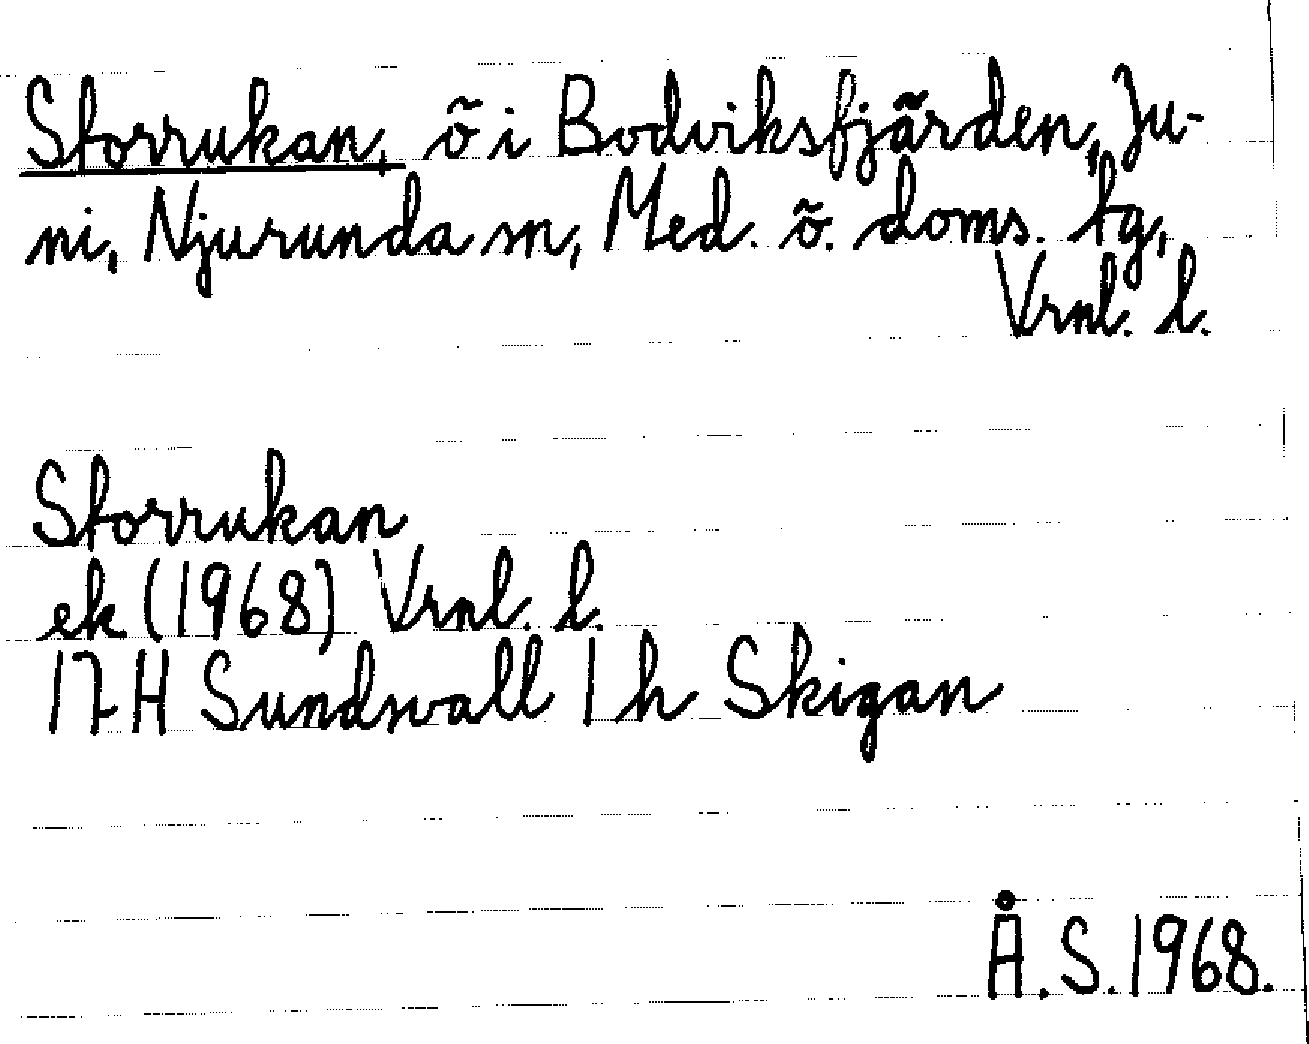 Storrukan, ö i Bodviksfjärden, Ju-
ni, Njurunda sn, Med. ö. doms. tg,
Vrnl. l.
Storrukan
ek (1968) Vrnl. l.
17H Sundsvall 1h Skigan
Å.S. 1968.